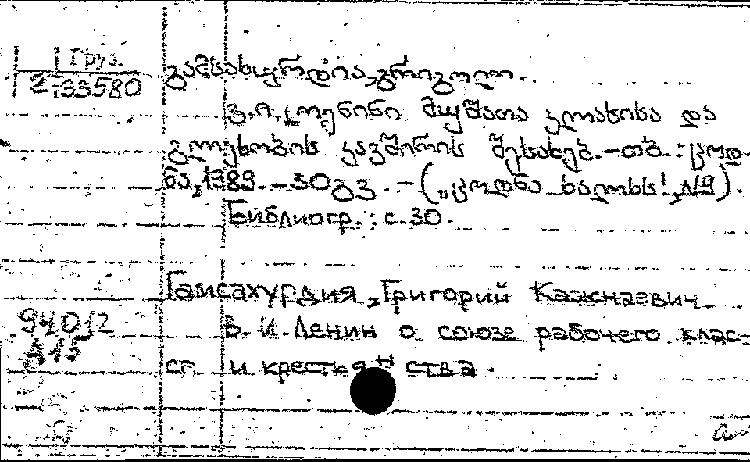 Груз.
2-33580
გამსახურდია, გრიგოლ.
ვ.ი. ლენინი მუშათა კლასისა და
გლეხობის კავშირის შესახებ. — თბ. : ცოდ-
ნა, 1989. — 30 გვ. — („ცოდნა ხალხს!", №19).
Библиогр.: с. 30.
Гамсахурдия, Григорий Кажнаевич
94012
В. И. Ленин о союзе рабочего клас-
А15
са и крестьянства.